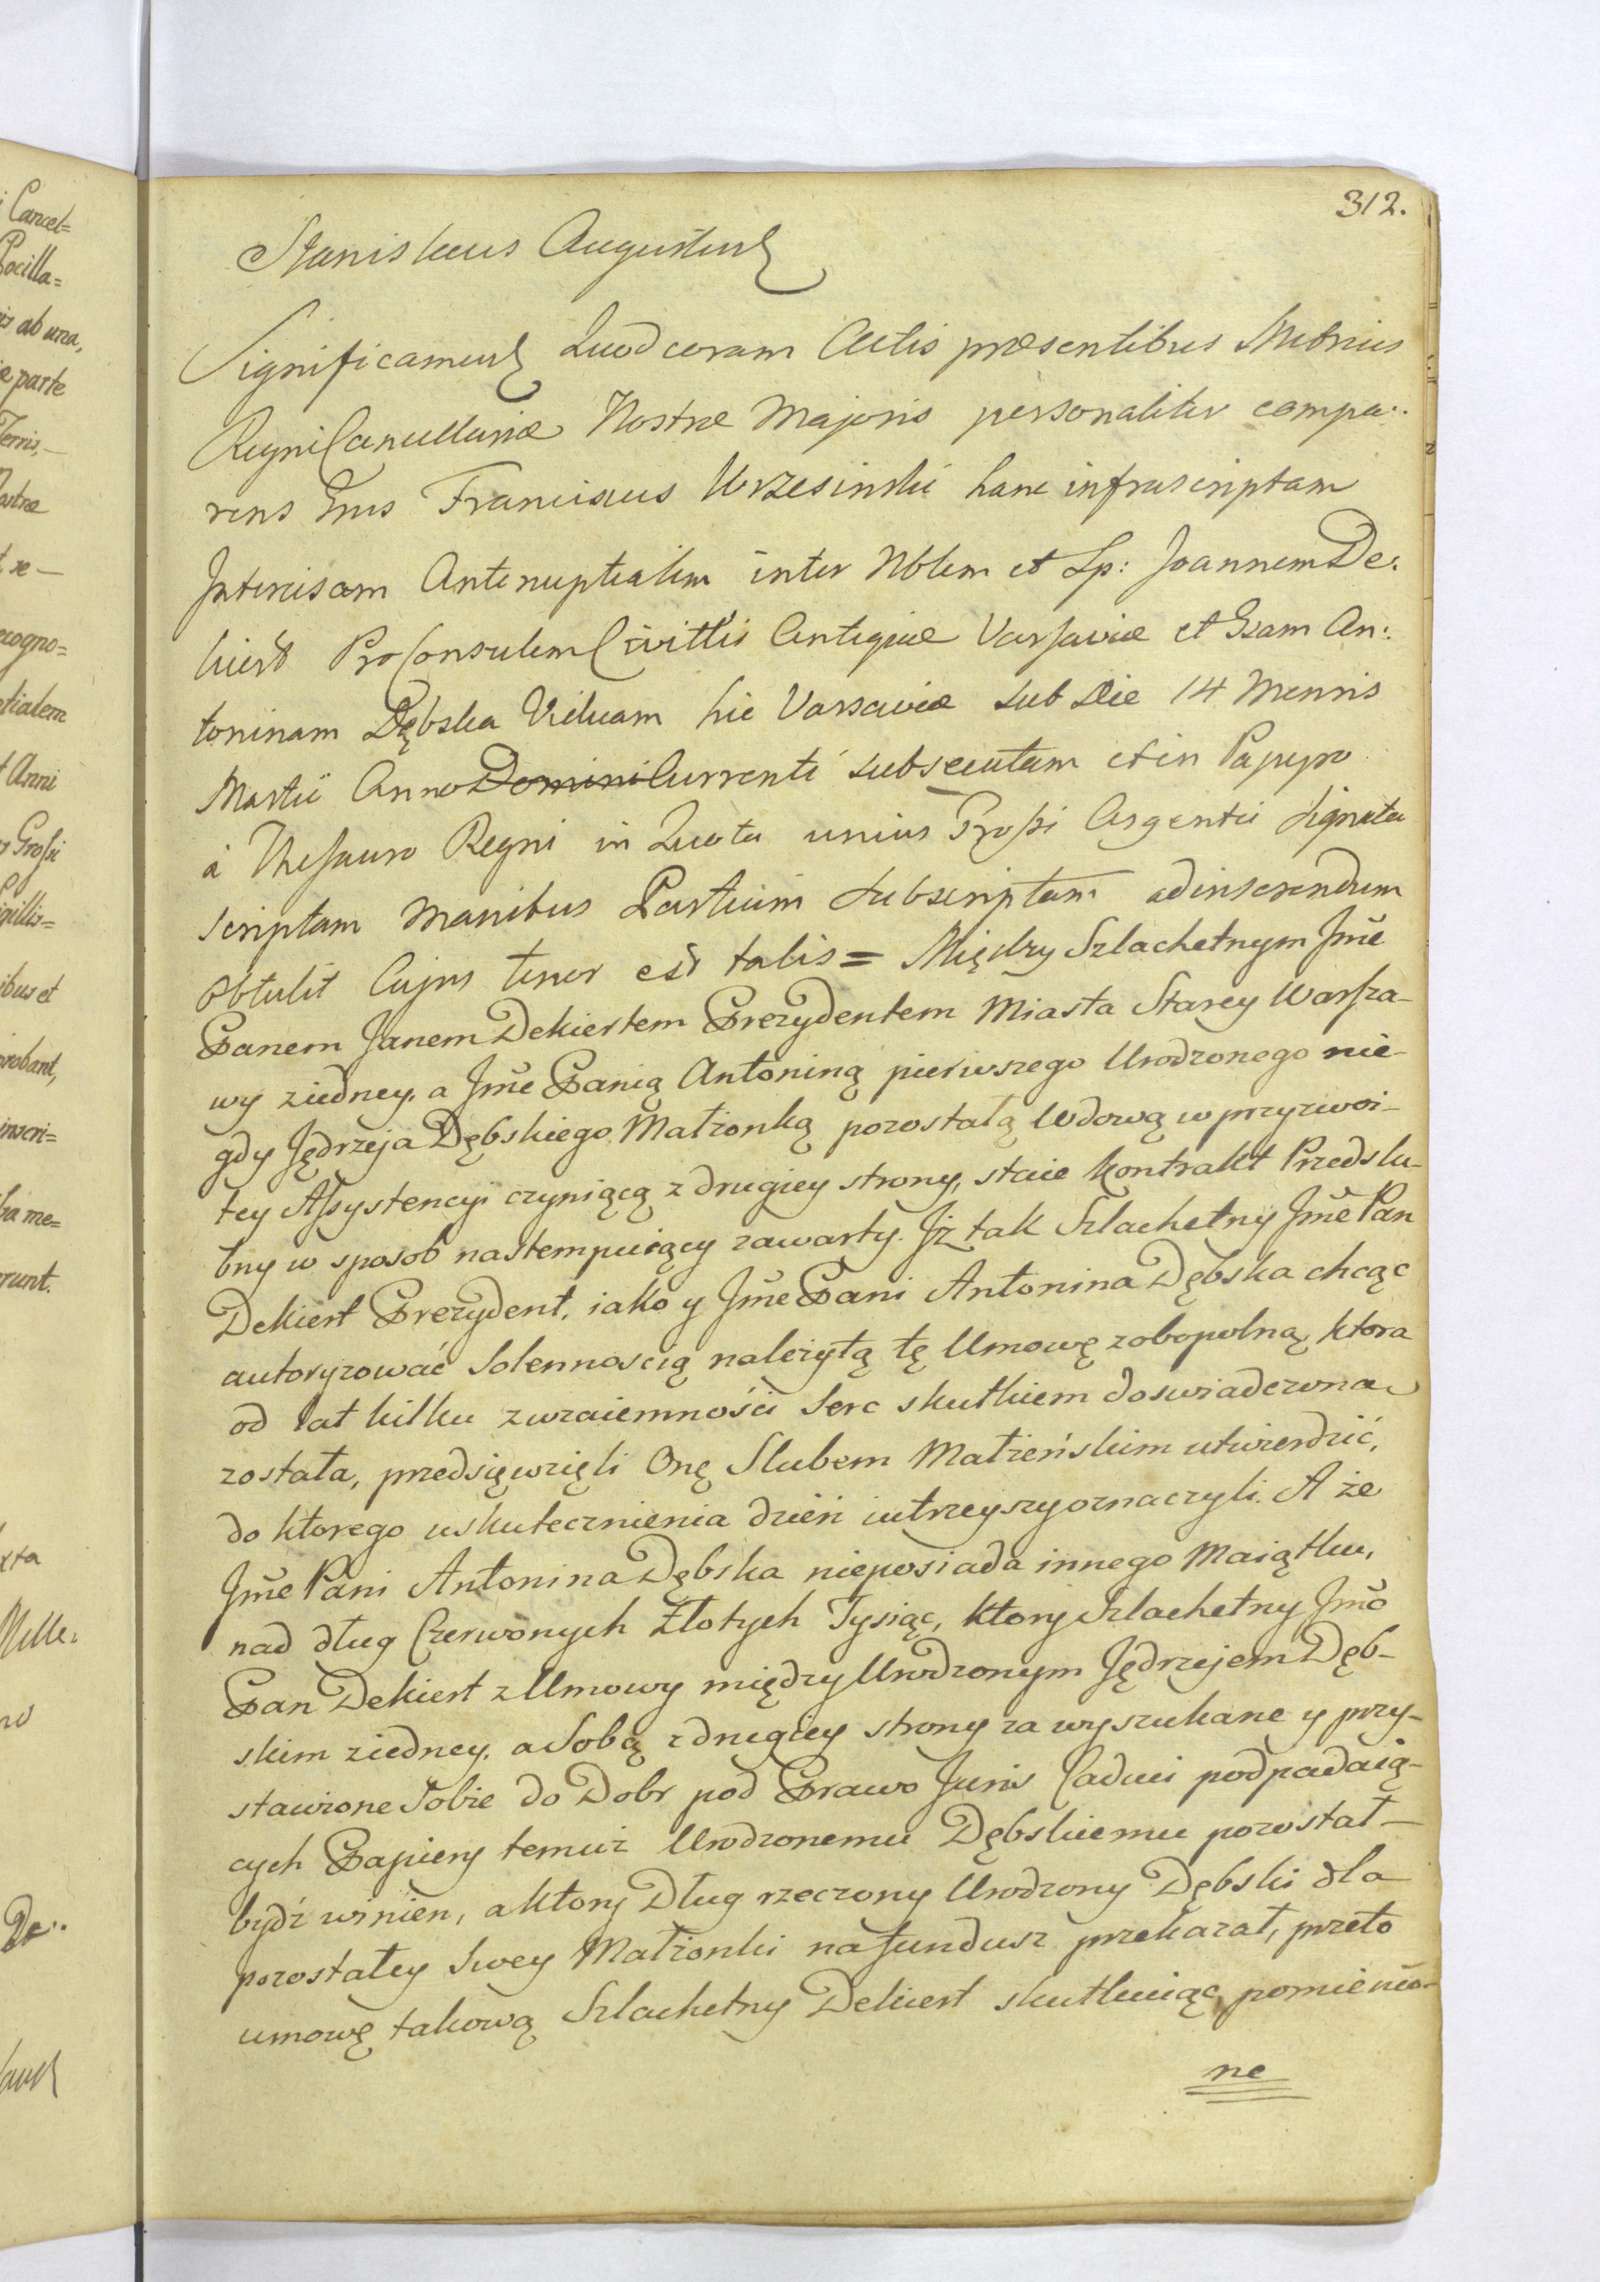 312.
Stanislaus Augustus
Significamus Quod coram Actis præsentibus Metrices
Regni Cancellariæ Nostræ Majoris personaliter compa:
rens Gnus Franciscus Wrzesinski hanc infrascriptam
Intercisam Antenuptialem inter Nblem et Sp: Joannem De:
kiert ProConsulem Civittis Antiquæ Varsaviæ et Gsam An:
toninam Dębska Viduam hic Varsaviæ sub Die 14 Mensis
Martii Anno Domini Currenti subsecutam et in Papyro
à Thesauro Regni in Quota unius Grossi Argentei Signata
scriptam Manibus Partium subscriptam ad inserendum
obtulit Cujus tenor est talis = Między Szlachetnym Jmć
Panem Janem Dekiertem Prezydentem Miasta Starey Warsza-
wy ziedney, a Jmć Panią Antoniną pierwszego Urodzonego nie-
gdy Jędrzeja Dębskiego Małżonką pozostałą Wdową w przyzwoi-
tey Assystencyi czyniącą z drugiey strony, staie kontrakt Przedslu-
bny w sposob nastempuiący zawarty. Jż tak Szlachetny Jmć Pan
Dekiert Prezydent, iako y Jmć Pani Antonina Dębska chcąc
autoryzować Solennoscią należytą tę Umowę zobopolną, ktora
od lat kilku zwzaiemności Serc skutkiem doswiadczona
została, przedsięwzięli Onę Slubem Małżeńskim utwierdzić,
do ktorego uskutecznienia dzień iutrzeyszy oznaczyli. A że
Jmć Pani Antonina Dębska nieposiada innego Maiątku,
nad dług Czerwonych Złotych Tysiąc, ktory Szlachetny Jmć
Pan Dekiert z Umowy między Urodzonym Jędrzejem Dęb-
skim ziedney, a Sobą z drugiey strony za wyszukane y przy-
stawione Sobie do Dobr pod Prawo Juris Caduci podpadaią-
cych Papiery temuż Urodzonemu Dębskiemu pozostał
bydź winien, a ktory Dług rzeczony Urodzony Dębski dla
pozostałey Swey Małżonki na fundusz przekazał, przeto
umowę takową Szlachetny Dekiert skutkuiąc, pomienio-
ne